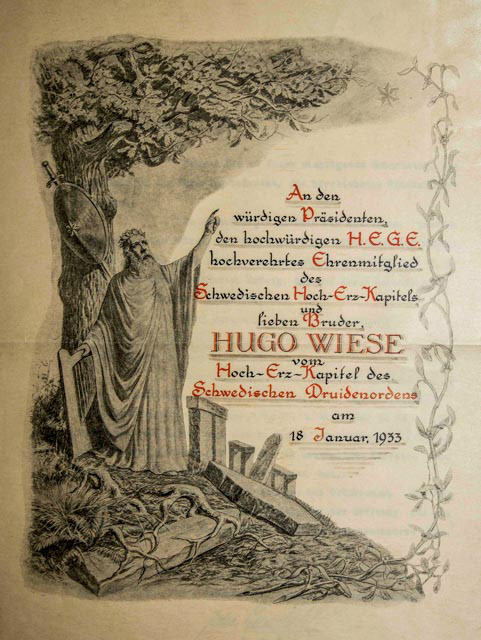 An den
würdigen Präsidenten,
den hochwürdigen H.E.G.E.
hochverehrtes Ehrenmitglied
des
Schwedischen Hoch-Erz-Kapitels
und
lieben Bruder,
HUGO WIESE
vom
Hoch-Erz-Kapitel des
Schwedischen Druidenordens
am
18 Januar, 1933